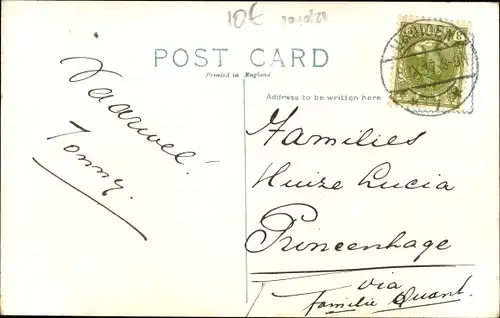 10€
POST CARD
Printed in England
Address to be written here
Vaarwel!
Tonny.
Families
Huize Lucia
Princenhage
via
familie Quant.